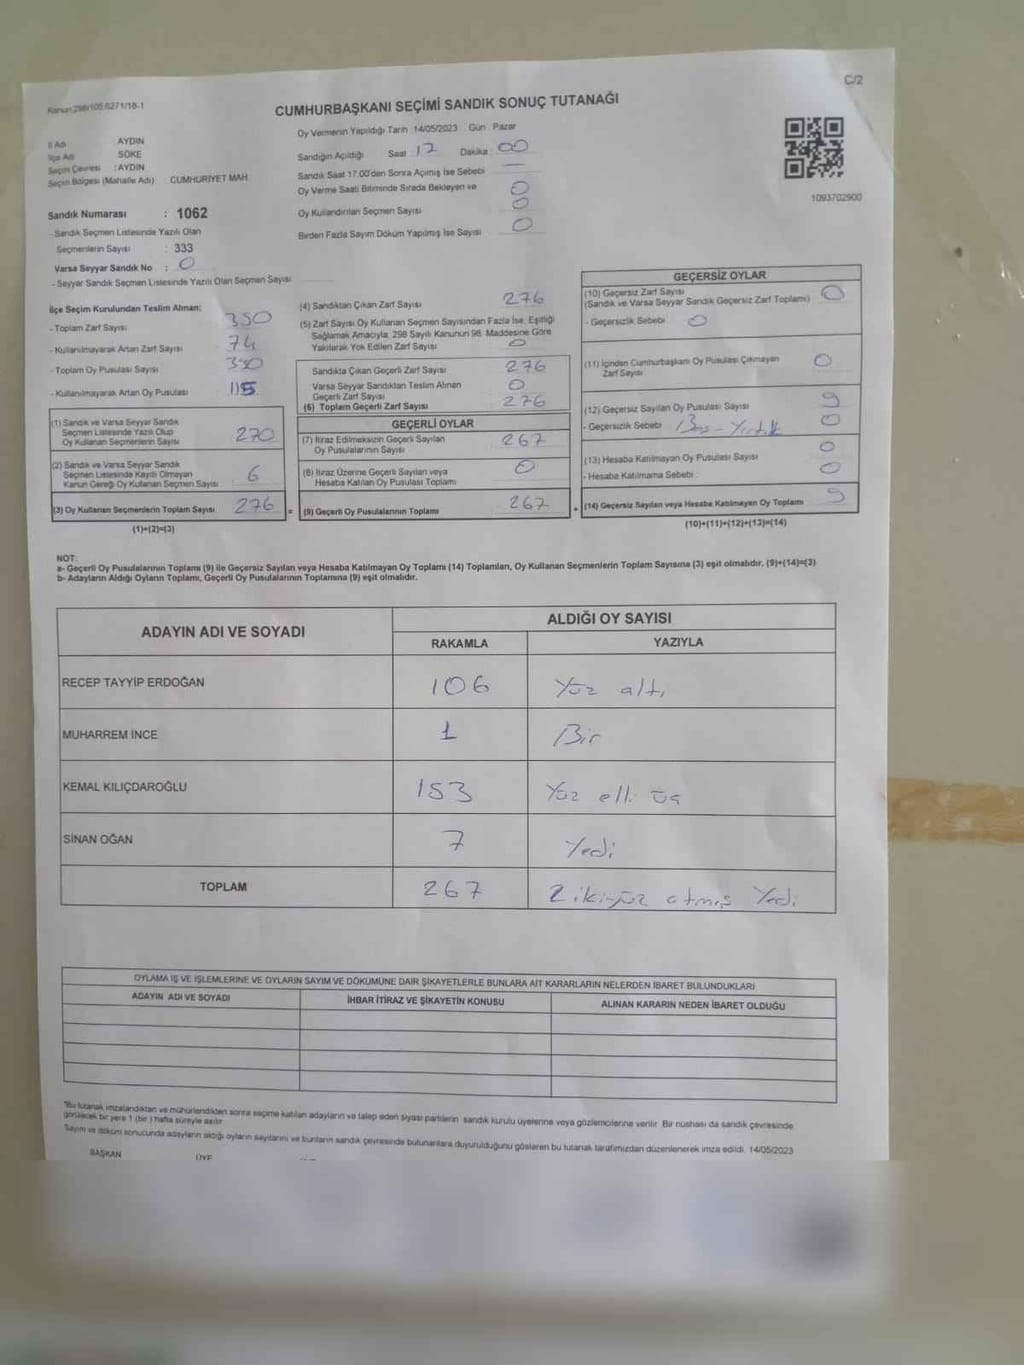 C/2
Kanun 298/105 6271/18-1
CUMHURBAŞKANI SEÇİMİ SANDIK SONUÇ TUTANAĞI
İl Adı AYDIN
İlçe Adı SÖKE
Seçim Çevresi : AYDIN
Seçim Bölgesi (Mahalle Adı) : CUMHURİYET MAH.
Sandık Numarası : 1062
- Sandık Seçmen Listesinde Yazılı Olan
Seçmenlerin Sayısı : 333
Varsa Seyyar Sandık No : 0
- Seyyar Sandık Seçmen Listesinde Yazılı Olan Seçmen Sayısı
Oy Vermenin Yapıldığı Tarih 14/05/2023 Gün : Pazar
Sandığın Açıldığı Saat 17 Dakika 00
Sandık Saat 17:00'den Sonra Açılmış İse Sebebi —
Oy Verme Saati Bitiminde Sırada Bekleyen ve 0
Oy Kullandırılan Seçmen Sayısı 0
Birden Fazla Sayım Döküm Yapılmış İse Sayısı 0
1093702900
İlçe Seçim Kurulundan Teslim Alınan:
- Toplam Zarf Sayısı 350
- Kullanılmayarak Artan Zarf Sayısı 74
- Toplam Oy Pusulası Sayısı 350
- Kullanılmayarak Artan Oy Pusulası
(1) Sandık ve Varsa Seyyar Sandık
Seçmen Listesinde Yazılı Olup
Oy Kullanan Seçmenlerin Sayısı 270
(2) Sandık ve Varsa Seyyar Sandık
Seçmen Listesinde Kayıtlı Olmayan
Kanun Gereği Oy Kullanan Seçmen Sayısı 6
(3) Oy Kullanan Seçmenlerin Toplam Sayısı 276 =
(1)+(2)=(3)
(4) Sandıktan Çıkan Zarf Sayısı 276
(5) Zarf Sayısı Oy Kullanan Seçmen Sayısından Fazla İse, Eşitliği
Sağlamak Amacıyla; 298 Sayılı Kanunun 98. Maddesine Göre
Yakılarak Yok Edilen Zarf Sayısı 0
Sandıkta Çıkan Geçerli Zarf Sayısı 276
Varsa Seyyar Sandıktan Teslim Alınan
Geçerli Zarf Sayısı 0
(6) Toplam Geçerli Zarf Sayısı 276
GEÇERLİ OYLAR
(7) İtiraz Edilmeksizin Geçerli Sayılan
Oy Pusulalarının Sayısı 267
(8) İtiraz Üzerine Geçerli Sayılan veya
Hesaba Katılan Oy Pusulası Toplamı 0
(9) Geçerli Oy Pusulalarının Toplamı 267 +
GEÇERSİZ OYLAR
(10) Geçersiz Zarf Sayısı
(Sandık ve Varsa Seyyar Sandık Geçersiz Zarf Toplamı) 0
- Geçersizlik Sebebi 0
(11) İçinden Cumhurbaşkanı Oy Pusulası Çıkmayan
Zarf Sayısı 0
(12) Geçersiz Sayılan Oy Pusulası Sayısı 9
- Geçersizlik Sebebi Boş - Yırtık 0
(13) Hesaba Katılmayan Oy Pusulası Sayısı 0
- Hesaba Katılmama Sebebi : 0
(14) Geçersiz Sayılan veya Hesaba Katılmayan Oy Toplamı 9
(10)+(11)+(12)+(13)=(14)
NOT:
a- Geçerli Oy Pusulalarının Toplamı (9) ile Geçersiz Sayılan veya Hesaba Katılmayan Oy Toplamı (14) Toplamları, Oy Kullanan Seçmenlerin Toplam Sayısına (3) eşit olmalıdır. (9)+(14)=(3)
b- Adayların Aldığı Oyların Toplamı, Geçerli Oy Pusulalarının Toplamına (9) eşit olmalıdır.
ADAYIN ADI VE SOYADI ALDIĞI OY SAYISI
RAKAMLA YAZIYLA
RECEP TAYYİP ERDOĞAN 106 Yüz altı
MUHARREM İNCE 1 Bir
KEMAL KILIÇDAROĞLU 153 Yüz elli üç
SİNAN OĞAN 7 Yedi
TOPLAM 267 2 ikiyüz atmış Yedi
OYLAMA İŞ VE İŞLEMLERİNE VE OYLARIN SAYIM VE DÖKÜMÜNE DAİR ŞİKAYETLERLE BUNLARA AİT KARARLARIN NELERDEN İBARET BULUNDUKLARI
ADAYIN ADI VE SOYADI İHBAR İTİRAZ VE ŞİKAYETİN KONUSU ALINAN KARARIN NEDEN İBARET OLDUĞU
*Bu tutanak imzalandıktan ve mühürlendikten sonra seçime katılan adayların ve talep eden siyasi partilerin sandık kurulu üyelerine veya gözlemcilerine verilir. Bir nüshası da sandık çevresinde
görülecek bir yere 1 (bir) hafta süreyle asılır.
Sayım ve döküm sonucunda adayların aldığı oyların sayılarını ve bunların sandık çevresinde bulunanlara duyurulduğunu gösteren bu tutanak tarafımızdan düzenlenerek imza edildi. 14/05/2023
BAŞKAN ÜYE